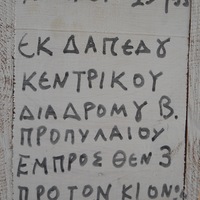 ΕΚ ΔΑΠΕΔΟΥ
ΚΕΝΤΡΙΚΟΥ
ΔΙΑΔΡΟΜΥ Β.
ΠΡΟΠΥΛΑΙΟΥ
ΕΜΠΡΟΣΘΕΝ 3
ΠΡΟ ΤΟΝ ΚΙΟΝ